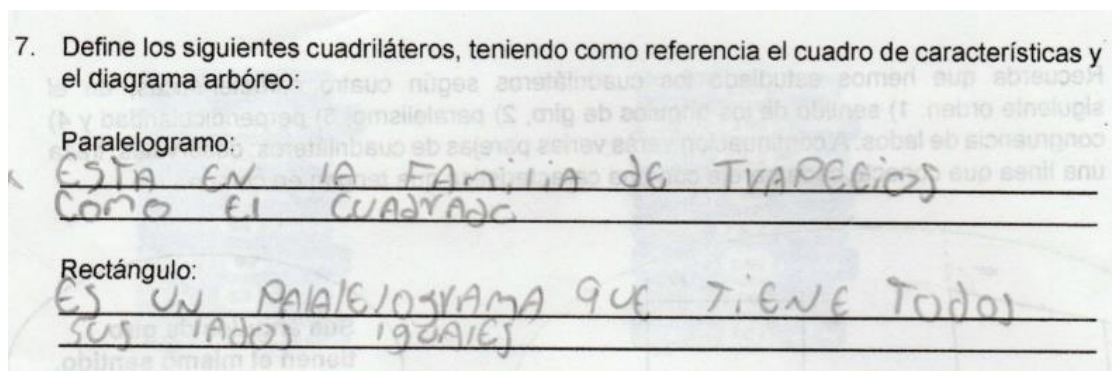 7. Define los siguientes cuadriláteros, teniendo como referencia el cuadro de características y
el diagrama arbóreo:
Paralelogramo:
ESTA EN lA FAMiliA dE TrAPECiOS
COMO El CUAdrAdO
Rectángulo:
ES UN PArAlElOgrAMA qUE TiENE TOdOS
SUS lAdOS igUAlES